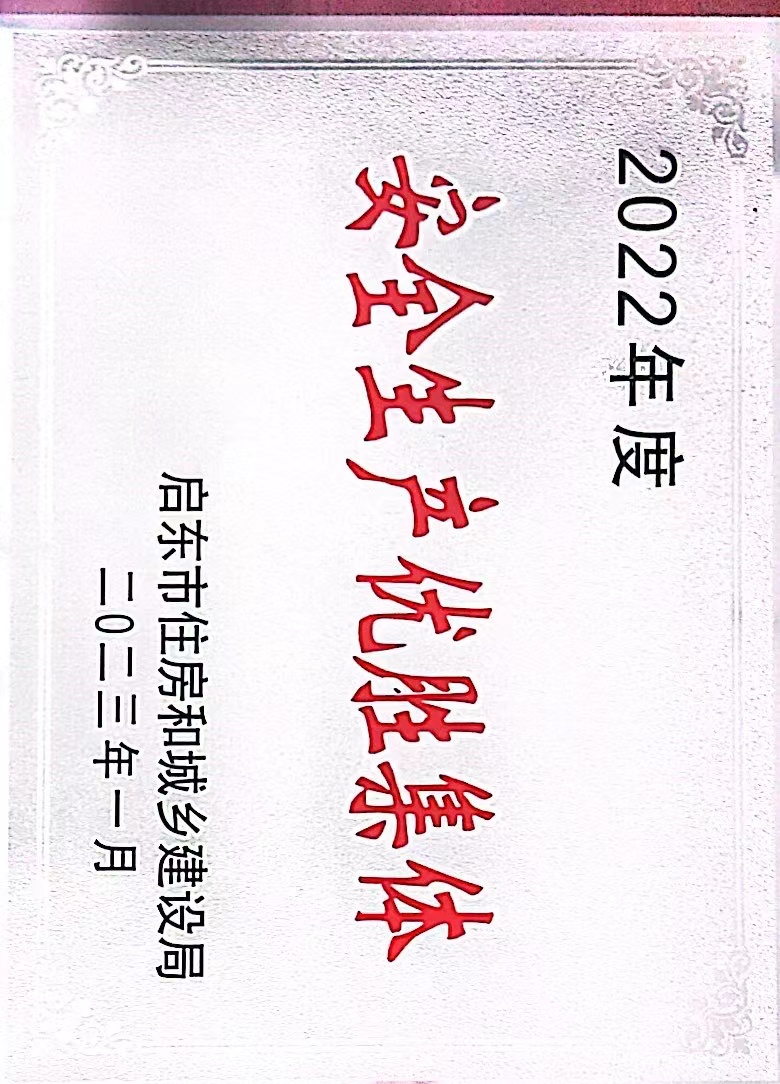 2022年度
安全生产优胜集体
启东市住房和城乡建设局
二〇二三年一月